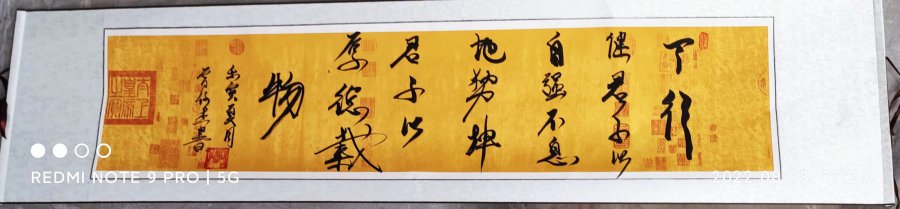 天行
健君子以
自强不息
地势坤
君子以
厚德载
物
壬寅夏月
REDMI NOTE 9 PRO | 5G
2022-08-08 17:29